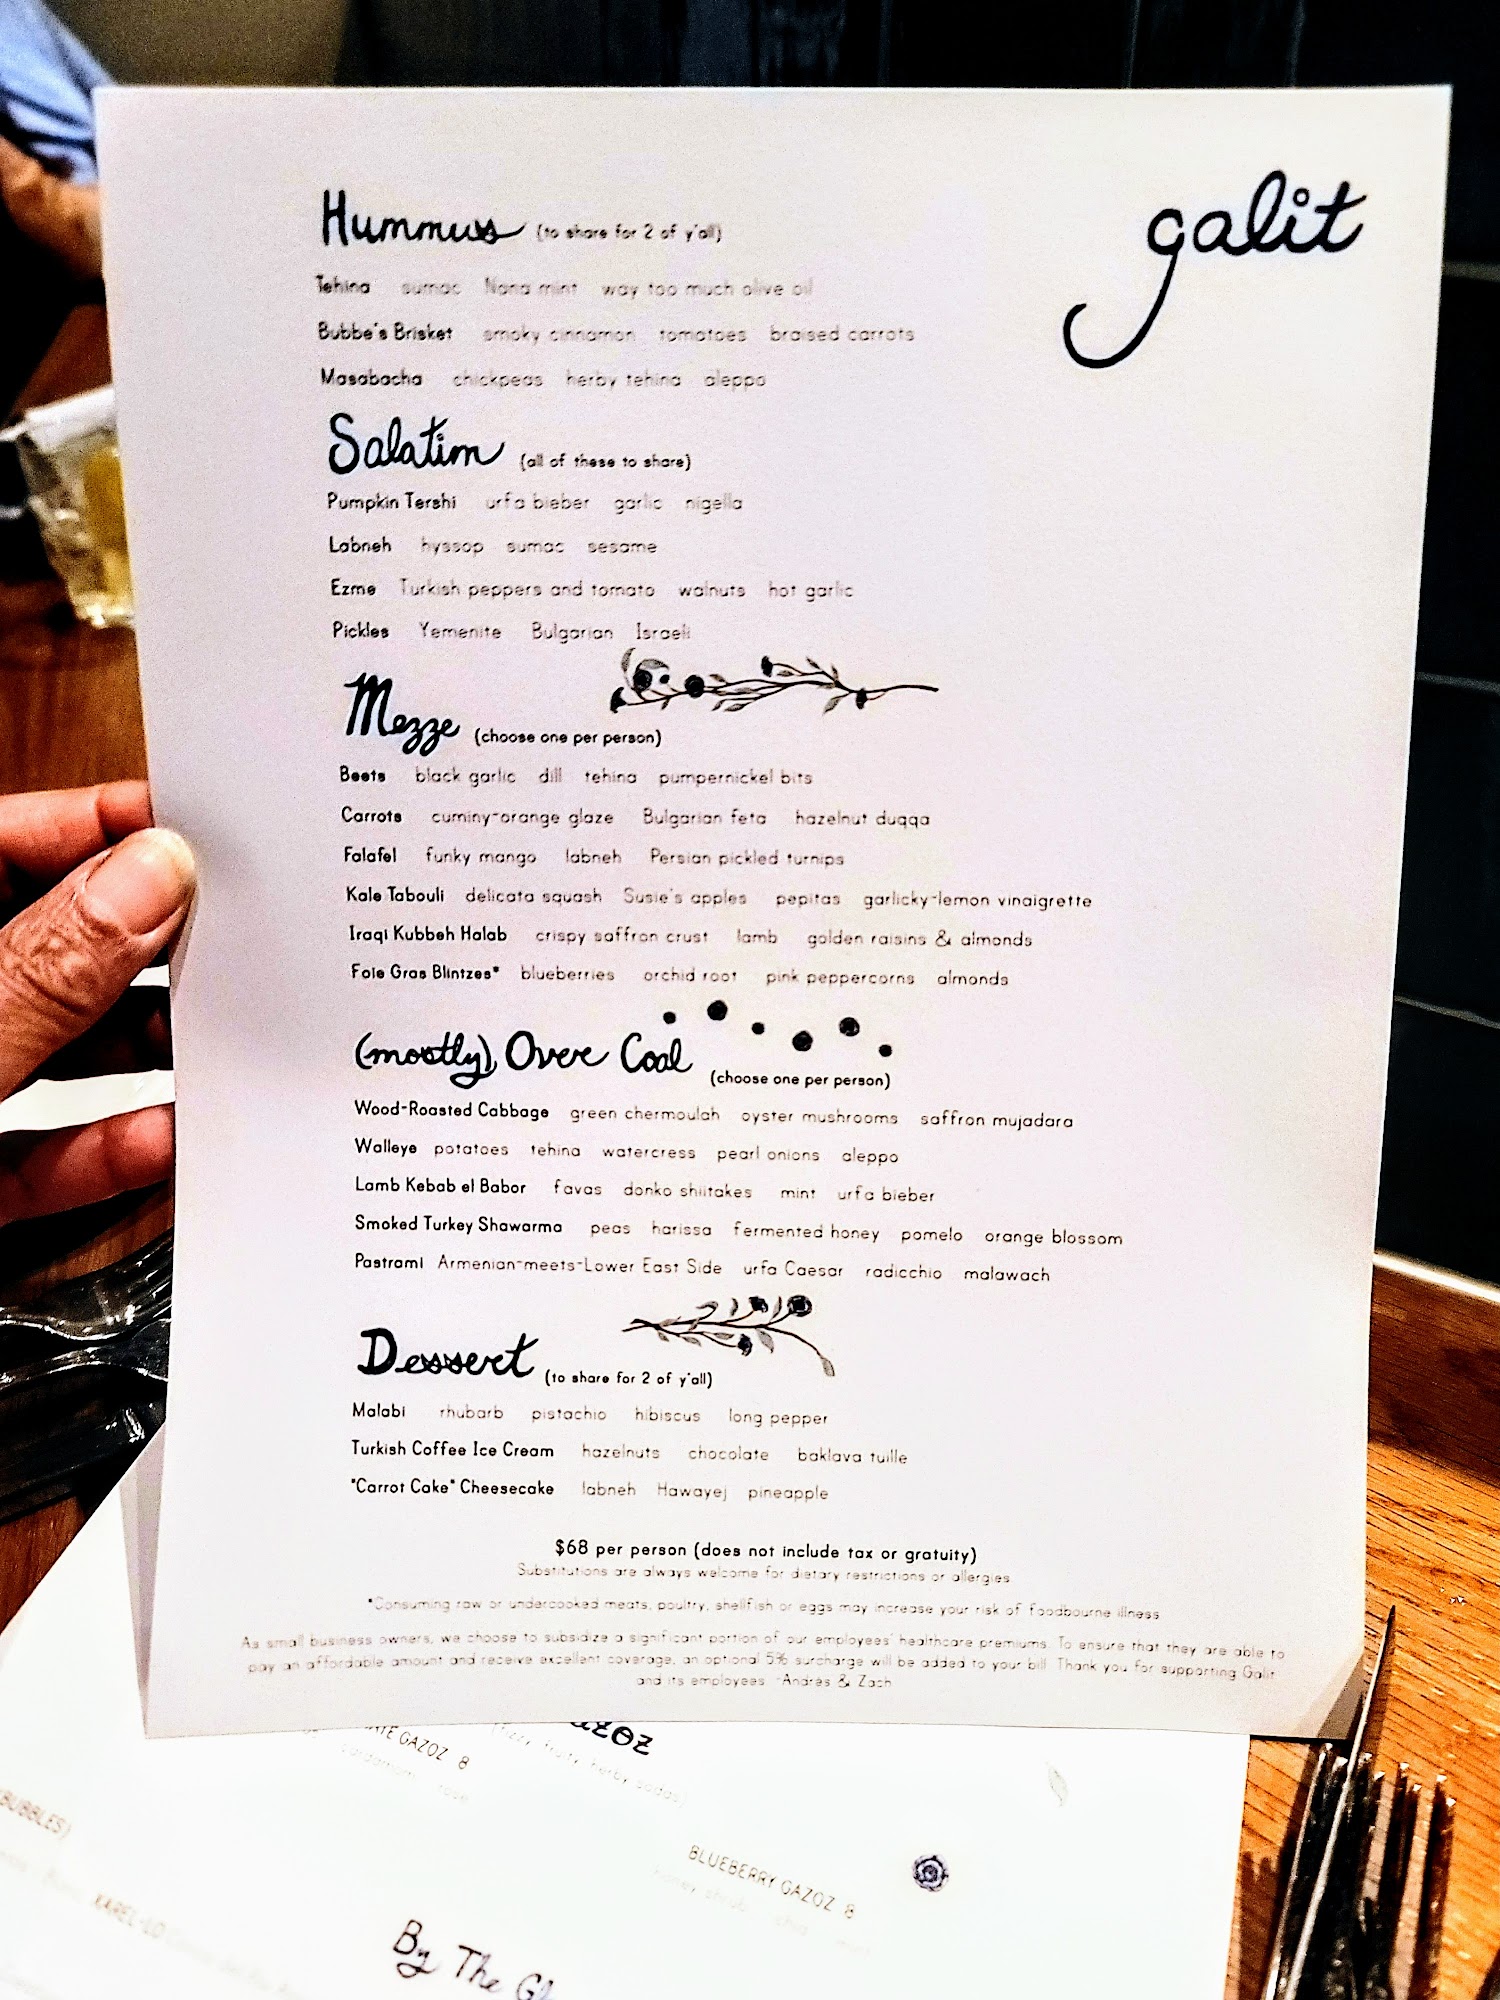 galit
Hummus (to share for 2 of y'all)
Tehina sumac Nana mint way too much olive oil
Bubbe's Brisket smoky cinnamon tomatoes braised carrots
Masabacha chickpeas herby tehina aleppo
Salatim (all of these to share)
Pumpkin Tershi urfa bieber garlic nigella
Labneh hyssop sumac sesame
Ezme Turkish peppers and tomato walnuts hot garlic
Pickles Yemenite Bulgarian Israeli
Mezze (choose one per person)
Beets black garlic dill tehina pumpernickel bits
Carrots cuminy-orange glaze Bulgarian feta hazelnut duqqa
Falafel funky mango labneh Persian pickled turnips
Kale Tabouli delicata squash Susie's apples pepitas garlicky-lemon vinaigrette
Iraqi Kubbeh Halab crispy saffron crust lamb golden raisins & almonds
Foie Gras Blintzes* blueberries orchid root pink peppercorns almonds
(mostly) Over Coal (choose one per person)
Wood-Roasted Cabbage green chermoulah oyster mushrooms saffron mujadara
Walleye potatoes tehina watercress pearl onions aleppo
Lamb Kebab el Babor favas donko shiitakes mint urfa bieber
Smoked Turkey Shawarma peas harissa fermented honey pomelo orange blossom
Pastrami Armenian-meets-Lower East Side urfa Caesar radicchio malawach
Dessert (to share for 2 of y'all)
Malabi rhubarb pistachio hibiscus long pepper
Turkish Coffee Ice Cream hazelnuts chocolate baklava tuille
"Carrot Cake" Cheesecake labneh Hawayej pineapple
$68 per person (does not include tax or gratuity)
Substitutions are always welcome for dietary restrictions or allergies
*Consuming raw or undercooked meats, poultry, shellfish or eggs may increase your risk of foodbourne illness
As small business owners, we choose to subsidize a significant portion of our employees' healthcare premiums. To ensure that they are able to
pay an affordable amount and receive excellent coverage, an optional 5% surcharge will be added to your bill. Thank you for supporting Galit
and its employees. -Andrés & Zach
GAZOZ 8
(fizzy, fruity, herby sodas)
BUBBLES)
BLUEBERRY GAZOZ 8
By The